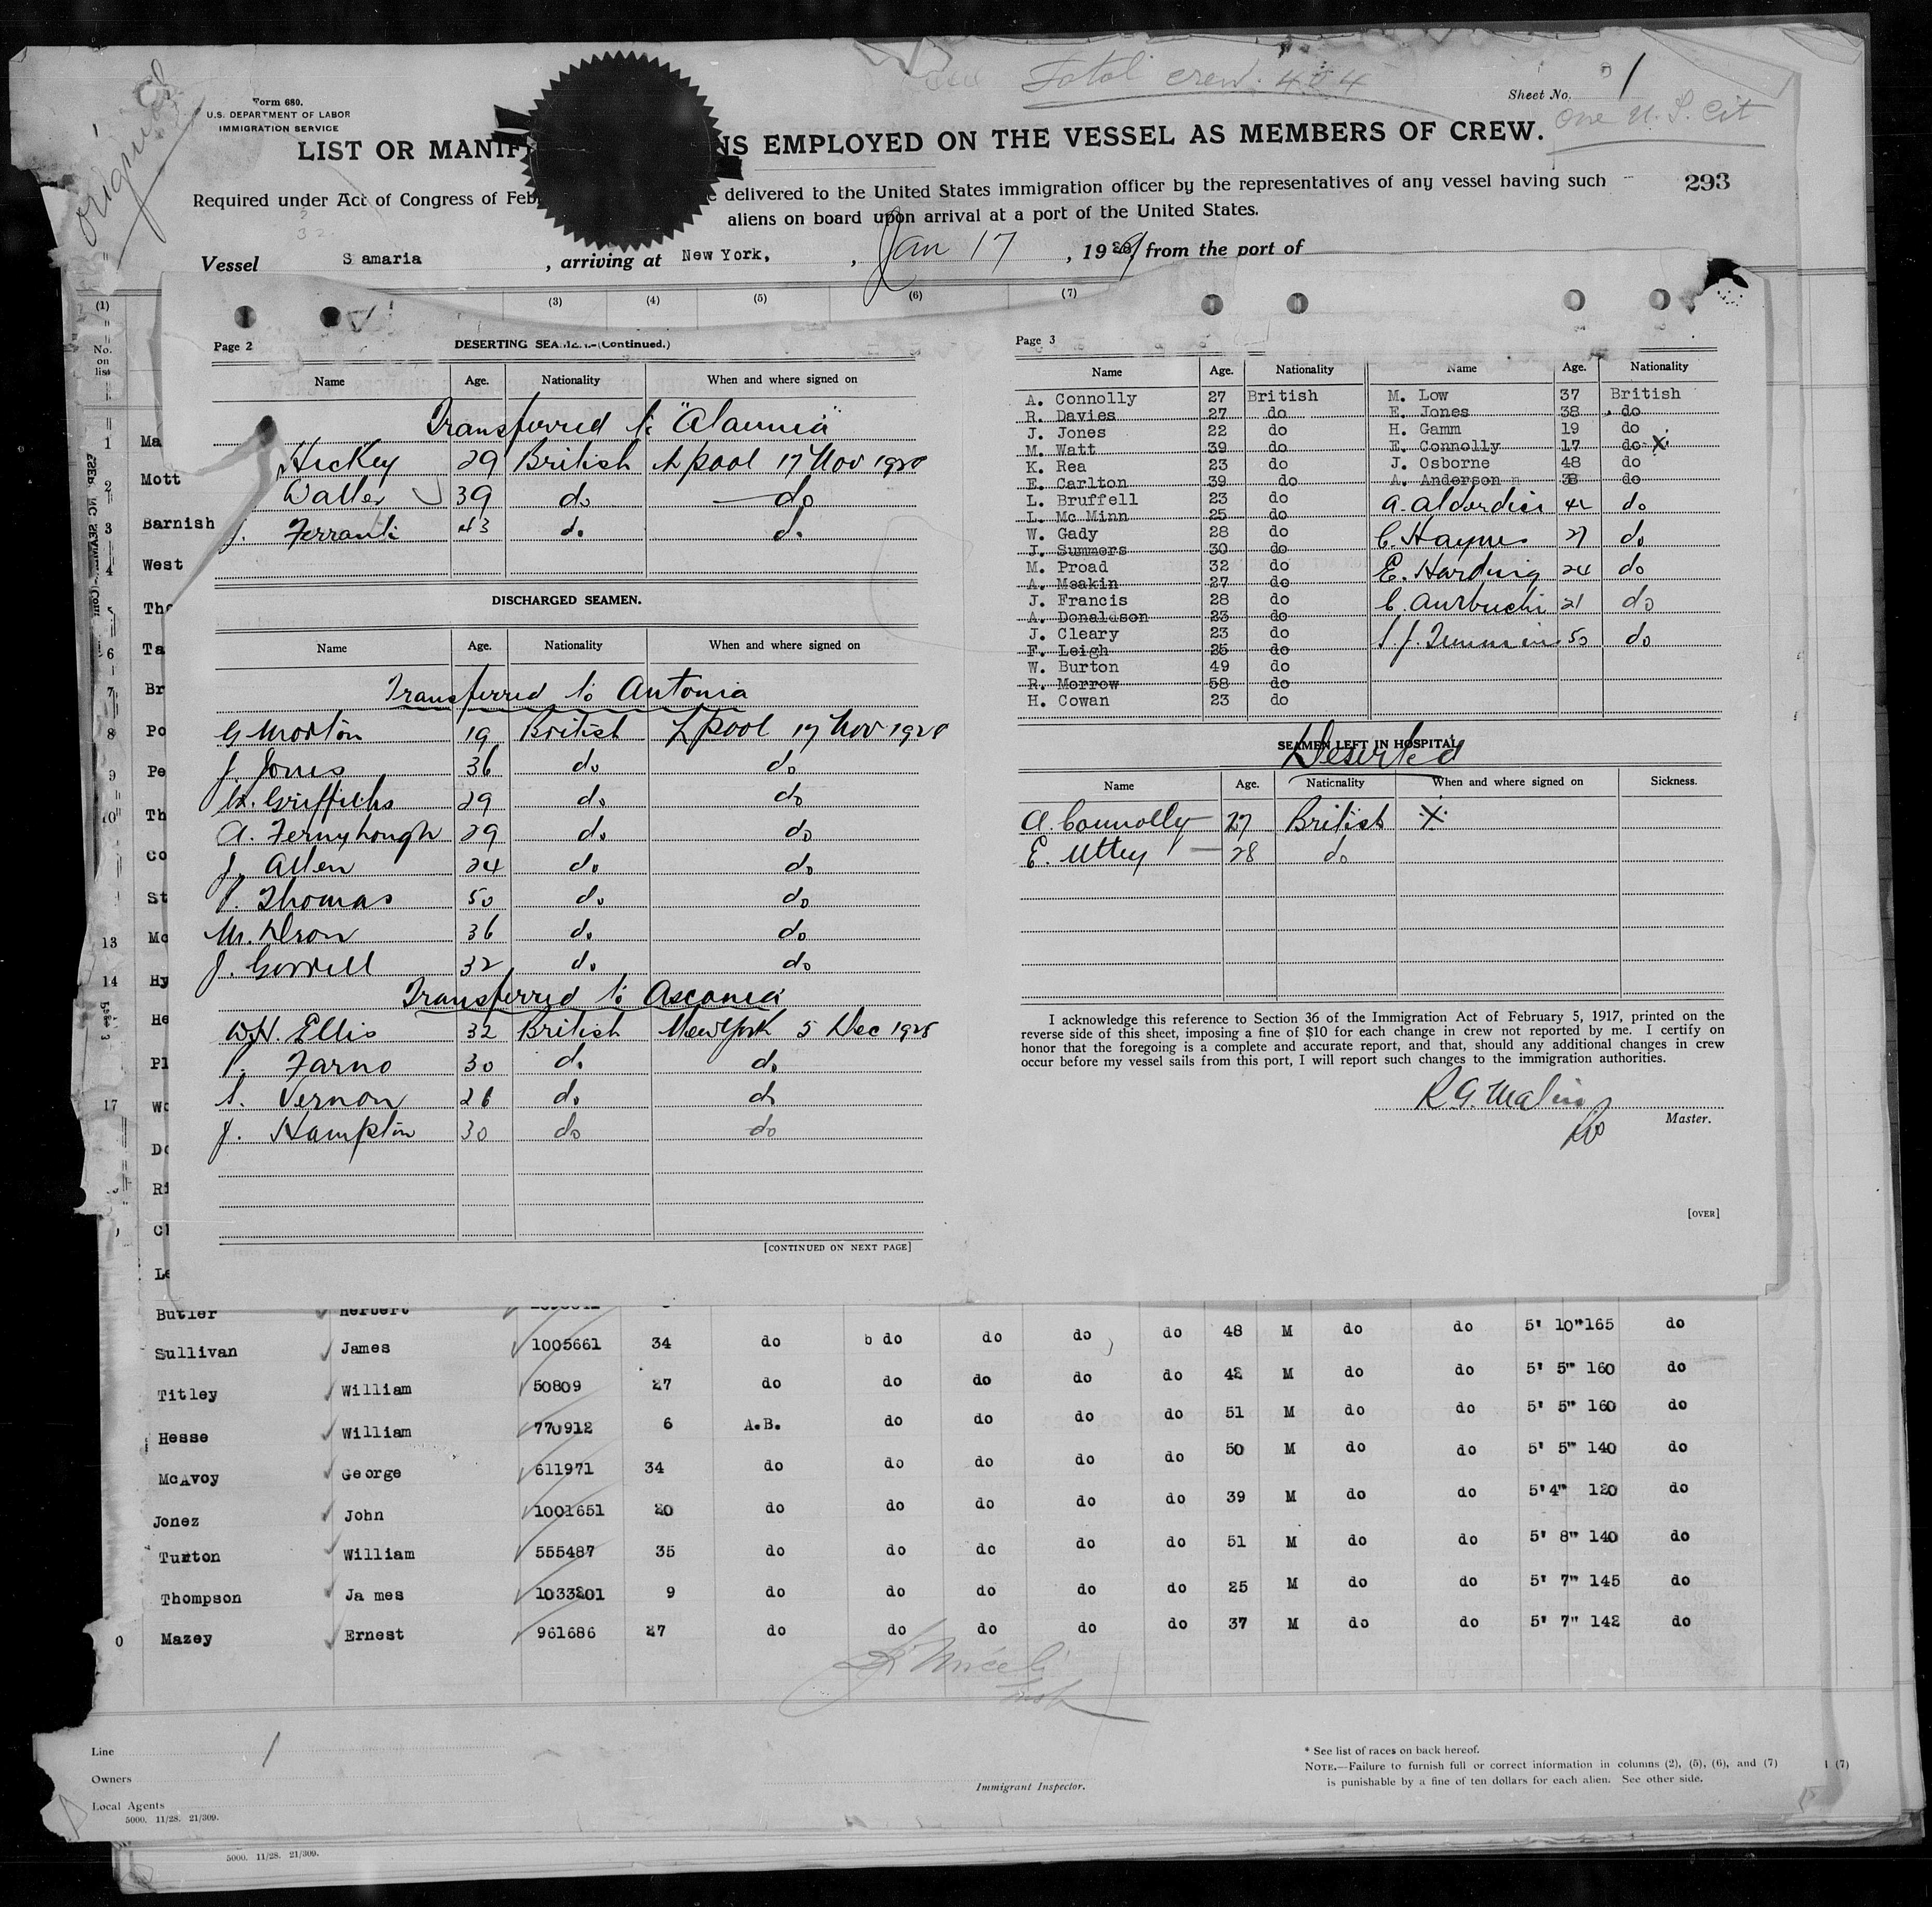 Original
Total crew. 404
Form 680.
U.S. DEPARTMENT OF LABOR
IMMIGRATION SERVICE
Sheet No. 1
One U.S. Cit
LIST OR MANIF NS EMPLOYED ON THE VESSEL AS MEMBERS OF CREW.
293
Required under Act of Congress of Feb e delivered to the United States immigration officer by the representatives of any vessel having such
aliens on board upon arrival at a port of the United States.
Vessel Samaria , arriving at New York, , Jan 17 , 1929 from the port of
(1) (3) (4) (5) (6) (7)
No. on list
Page 2 DESERTING SEAMEN—(Continued.)
Name Age. Nationality When and where signed on
Transferred to "Alaunia"
Hickey 29 British L'pool 17 Nov 1928
Waller 39 do do
J. Ferranti 43 do do
DISCHARGED SEAMEN.
Name Age. Nationality When and where signed on
Transferred to Antonia
G Morton 19 British L'pool 17 Nov 1928
J. Jones 36 do do
Griffiths 29 do do
A. Fernyhough 29 do do
J. Allen 24 do do
Thomas 50 do do
M. Dron 36 do do
J. Gorrell 32 do do
Transferred to Ascania
W.H. Ellis 32 British New York 5 Dec 1928
Farno 30 do do
Vernon 26 do do
J. Hampton 30 do do
[CONTINUED ON NEXT PAGE]
Page 3
Name Age. Nationality Name Age. Nationality
A. Connolly 27 British M. Low 37 British
R. Davies 27 do E. Jones 38 do
J. Jones 22 do H. Gamm 19 do
M. Watt 39 do E. Connolly 17 do X
K. Rea 23 do J. Osborne 48 do
E. Carlton 39 do A. Anderson 38 do
L. Bruffell 23 do A. Alderdice 42 do
L. Mc Minn 25 do
W. Gady 28 do C. Haynes 27 do
J. Summers 30 do
M. Proad 32 do E. Harding 24 do
A. Meakin 27 do
J. Francis 28 do C. 21 do
A. Donaldson 23 do
J. Cleary 23 do 50 do
F. Leigh 25 do
W. Burton 49 do
R. Morrow 58 do
H. Cowan 23 do
SEAMEN LEFT IN HOSPITAL
Deserted
Name Age. Nationality When and where signed on Sickness.
A. Connolly 27 British X
E. Uttey 28 do
I acknowledge this reference to Section 36 of the Immigration Act of February 5, 1917, printed on the
reverse side of this sheet, imposing a fine of $10 for each change in crew not reported by me. I certify on
honor that the foregoing is a complete and accurate report, and that, should any additional changes in crew
occur before my vessel sails from this port, I will report such changes to the immigration authorities.
R. G. Malin
Master.
[OVER]
1 Ma
2 Mott
3 Barnish
4 West
Tho
6 Ta
7 Br
8 Po
9 Pe
10 Th
Co
St
13 Mc
14 Hy
He
Pl
17 Wo
Do
Ri
Cl
Le
Butler Herbert
Sullivan James 1005661 34 do b do do do do 48 M do do 5' 10" 165 do
Titley William 50809 27 do do do do do 42 M do do 5' 5" 160 do
Hesse William 770912 6 A.B. do do do do 51 M do do 5' 5" 160 do
McAvoy George 611971 34 do do do do do 50 M do do 5' 5" 140 do
Jonez John 1001651 20 do do do do do 39 M do do 5'4" 120 do
Turton William 555487 35 do do do do do 51 M do do 5' 8" 140 do
Thompson Ja mes 1033201 9 do do do do do 25 M do do 5' 7" 145 do
0 Mazey Ernest 961686 27 do do do do do 37 M do do 5' 7" 142 do
Line 1
Owners
Local Agents
5000. 11/28. 21/309.
Immigrant Inspector.
* See list of races on back hereof.
NOTE.—Failure to furnish full or correct information in columns (2), (5), (6), and (7)
is punishable by a fine of ten dollars for each alien. See other side.
l (7)
5000. 11/28. 21/309.